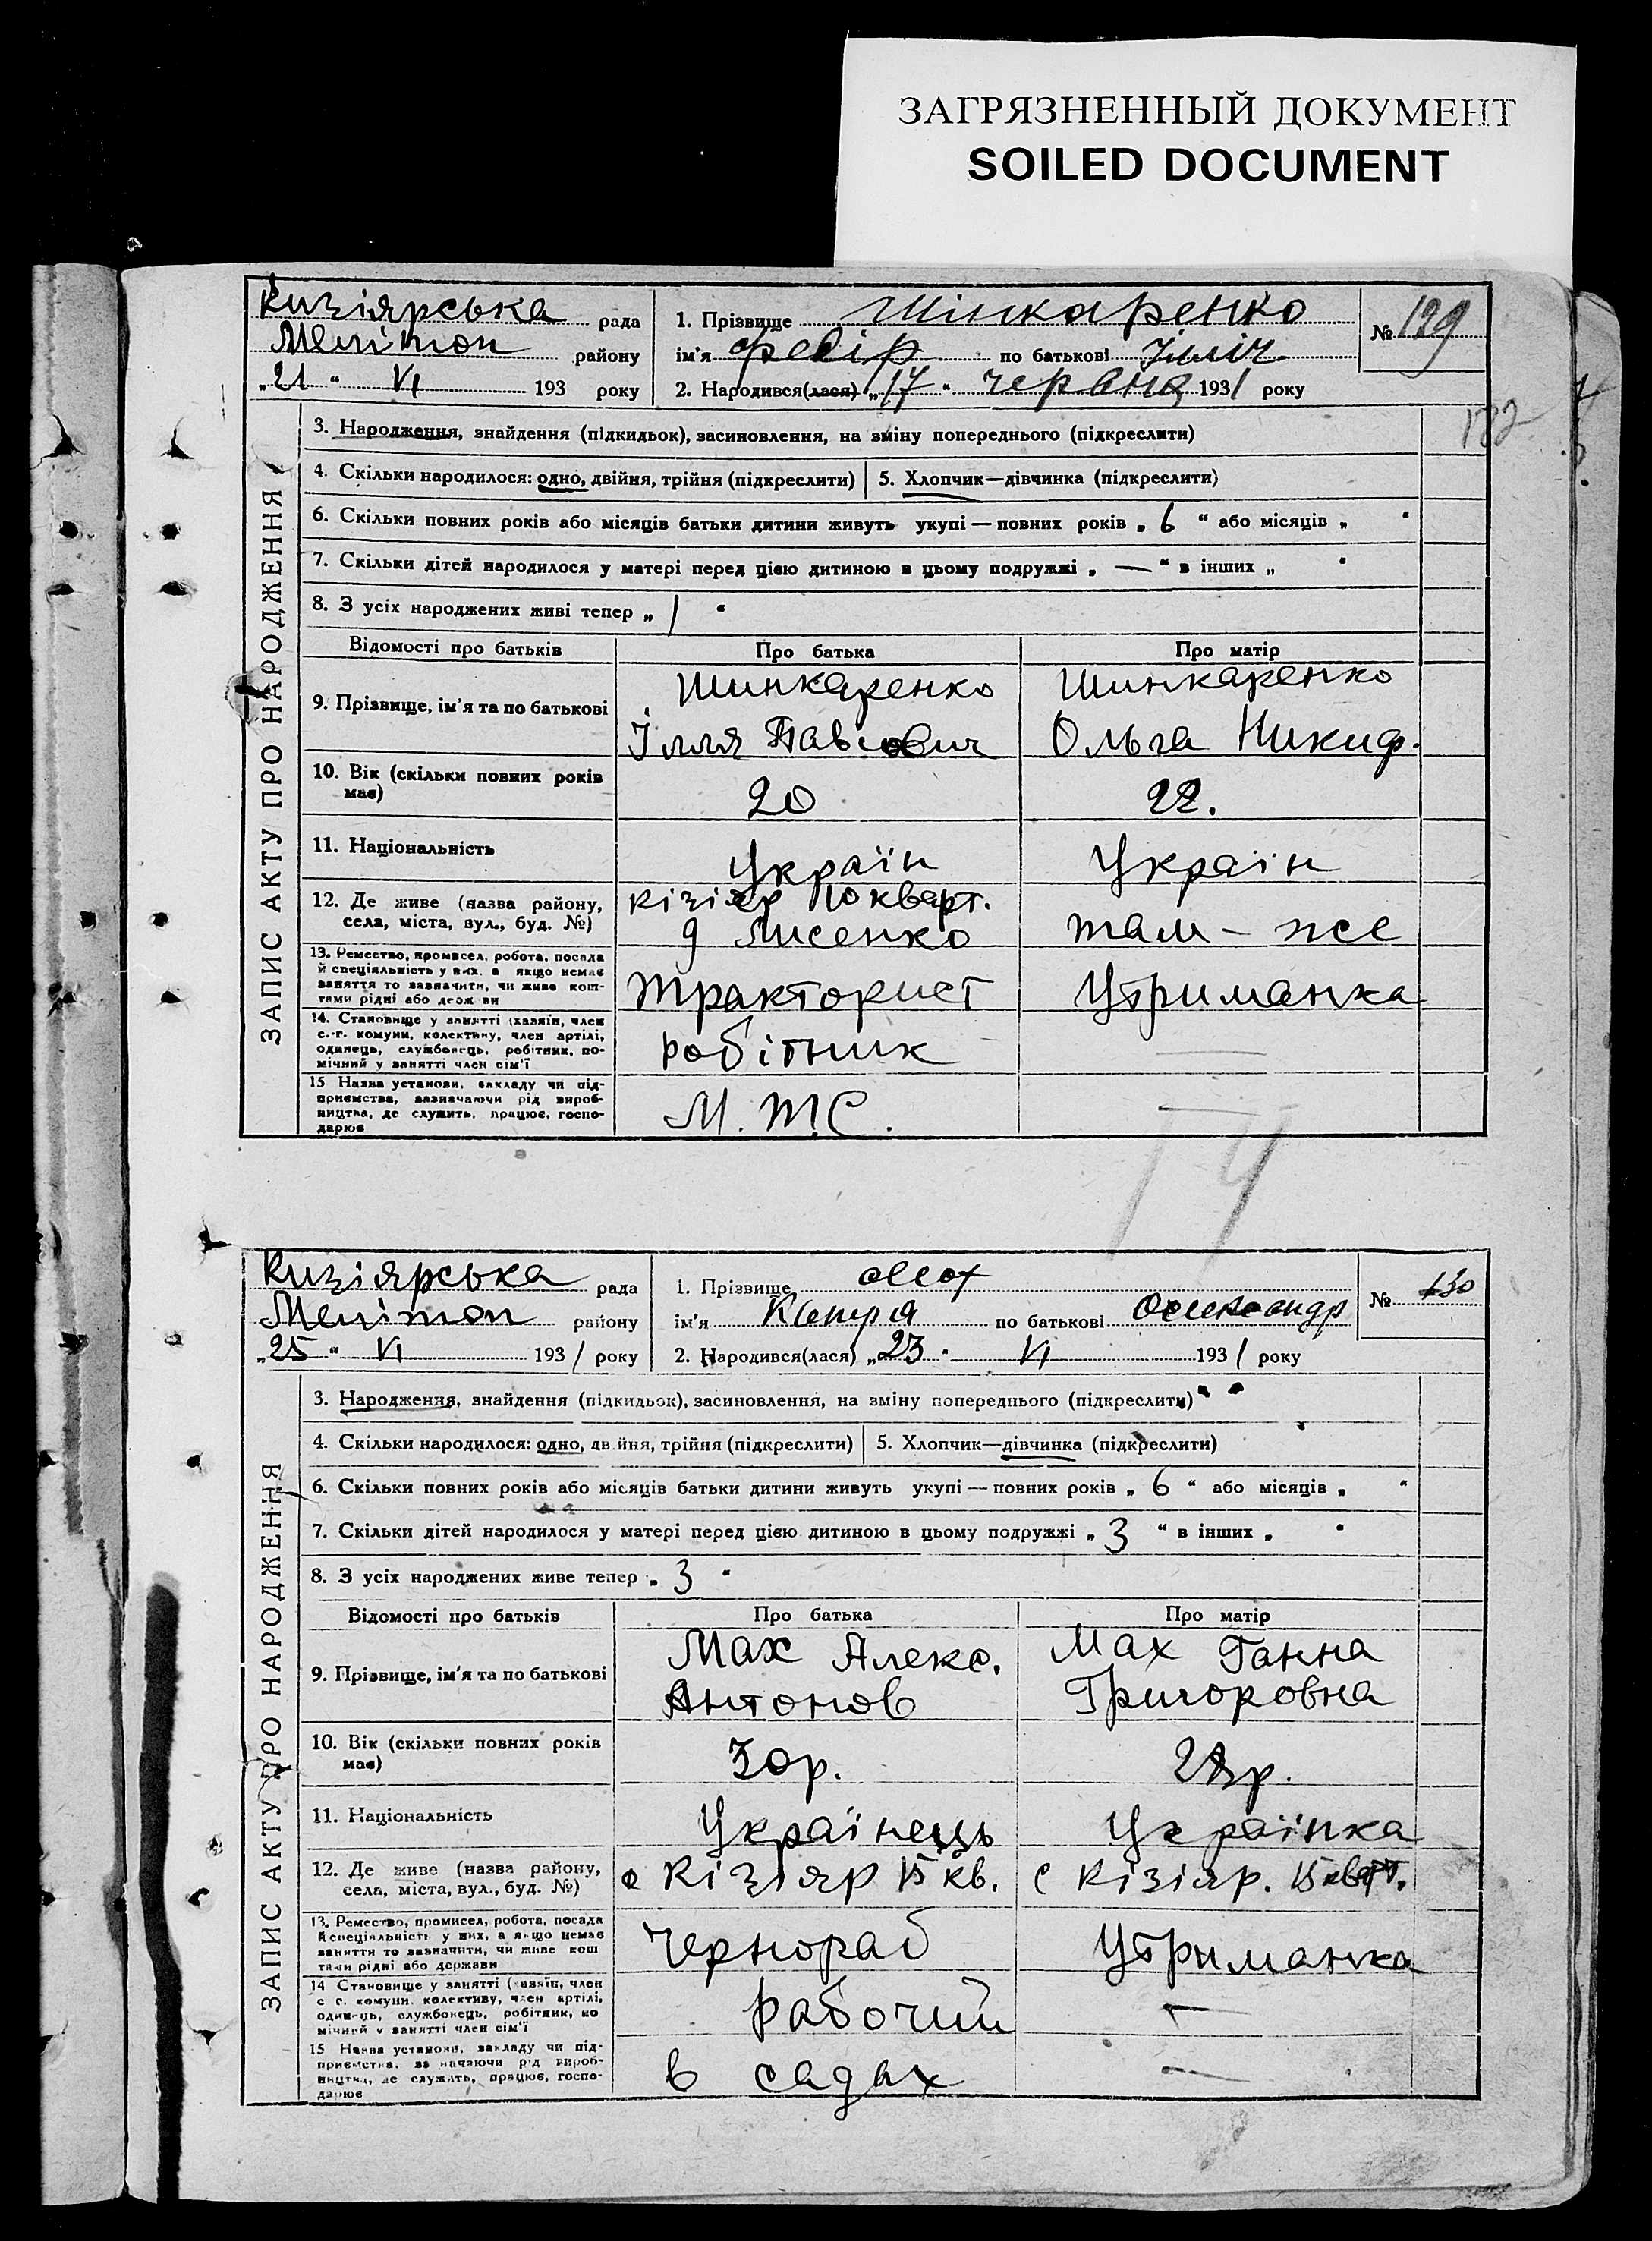 ЗАГРЯЗНЕННЫЙ ДОКУМЕНТ
SOILED DOCUMENT
Кизіярська рада
Мелітоп району
„21 “ VI 193 року
1. Прізвище Шінкаренко
ім'я Федір по батькові Ілліч
2. Народився(лася) „17 “ червня 1931 року
№ 129
132
ЗАПИС АКТУ ПРО НАРОДЖЕННЯ
3. Народження, знайдення (підкидьок), засиновлення, на зміну попереднього (підкреслити)
4. Скільки народилося: одно, двійня, трійня (підкреслити)
5. Хлопчик—дівчинка (підкреслити)
6. Скільки повних років або місяців батьки дитини живуть укупі — повних років „ 6 “ або місяців „ “
7. Скільки дітей народилося у матері перед цією дитиною в цьому подружжі „ — “ в інших „ “
8. З усіх народжених живі тепер „ 1 “
Відомості про батьків Про батька Про матір
9. Прізвище, ім'я та по батькові
Шинкаренко
Ілля Павлович
Шинкаренко
Ольга Никиф.
10. Вік (скільки повних років має)
20
22.
11. Національність
Україн
Україн
12. Де живе (назва району,
села, міста, вул., буд. №)
Кізіяр 10 кварт.
д Лисенко
там - же
13. Ремество, промисел, робота, посада
й спеціяльність у них, а якщо немає
заняття то зазначити, чи живе кош-
тами рідні або держави
Тракторист
Утриманка
14. Становище у занятті (хазяїн, член
с.-г. комуни, колективу, член артілі,
одинець, службовець, робітник, по-
мічний у занятті член сім'ї
робітник
—
15 Назва установи, закладу чи під-
приємства, зазначаючи рід вироб-
ництва, де служить, працює, госпо-
дарює
М.Т.С.
—
Кизіярська рада
Мелітоп району
„25 “ VI 1931 року
1. Прізвище Мах
ім'я Катря по батькові Олександр
2. Народився(лася) „23 “ VI 1931 року
№ 130
ЗАПИС АКТУ ПРО НАРОДЖЕННЯ
3. Народження, знайдення (підкидьок), засиновлення, на зміну попереднього (підкреслити)
4. Скільки народилося: одно, двійня, трійня (підкреслити)
5. Хлопчик—дівчинка (підкреслити)
6. Скільки повних років або місяців батьки дитини живуть укупі — повних років „ 6 “ або місяців „ “
7. Скільки дітей народилося у матері перед цією дитиною в цьому подружжі „ 3 “ в інших „ “
8. З усіх народжених живе тепер „ 3 “
Відомості про батьків Про батька Про матір
9. Прізвище, ім'я та по батькові
Мах Алекс.
Антонов
Мах Ганна
Григоровна
10. Вік (скільки повних років має)
30р.
11. Національність
Українець
Українка
12. Де живе (назва району,
села, міста, вул., буд. №)
с Кізіяр 15 кв.
с Кізіяр. 15 кварт.
13. Ремество, промисел, робота, посада
й спеціяльність у них, а якщо немає
заняття то зазначити, чи живе кош
тами рідні або держави
Чернораб
Утриманка
14 Становище у занятті (хазяїн, член
с г. комуни, колективу, член артілі,
одинець, службовець, робітник, по
мічний у занятті член сім'ї
рабочий
—
15 Назва установи, закладу чи під-
приємства, зазначаючи рід вироб-
ництва, де служить, працює, госпо-
дарює
в садах
—